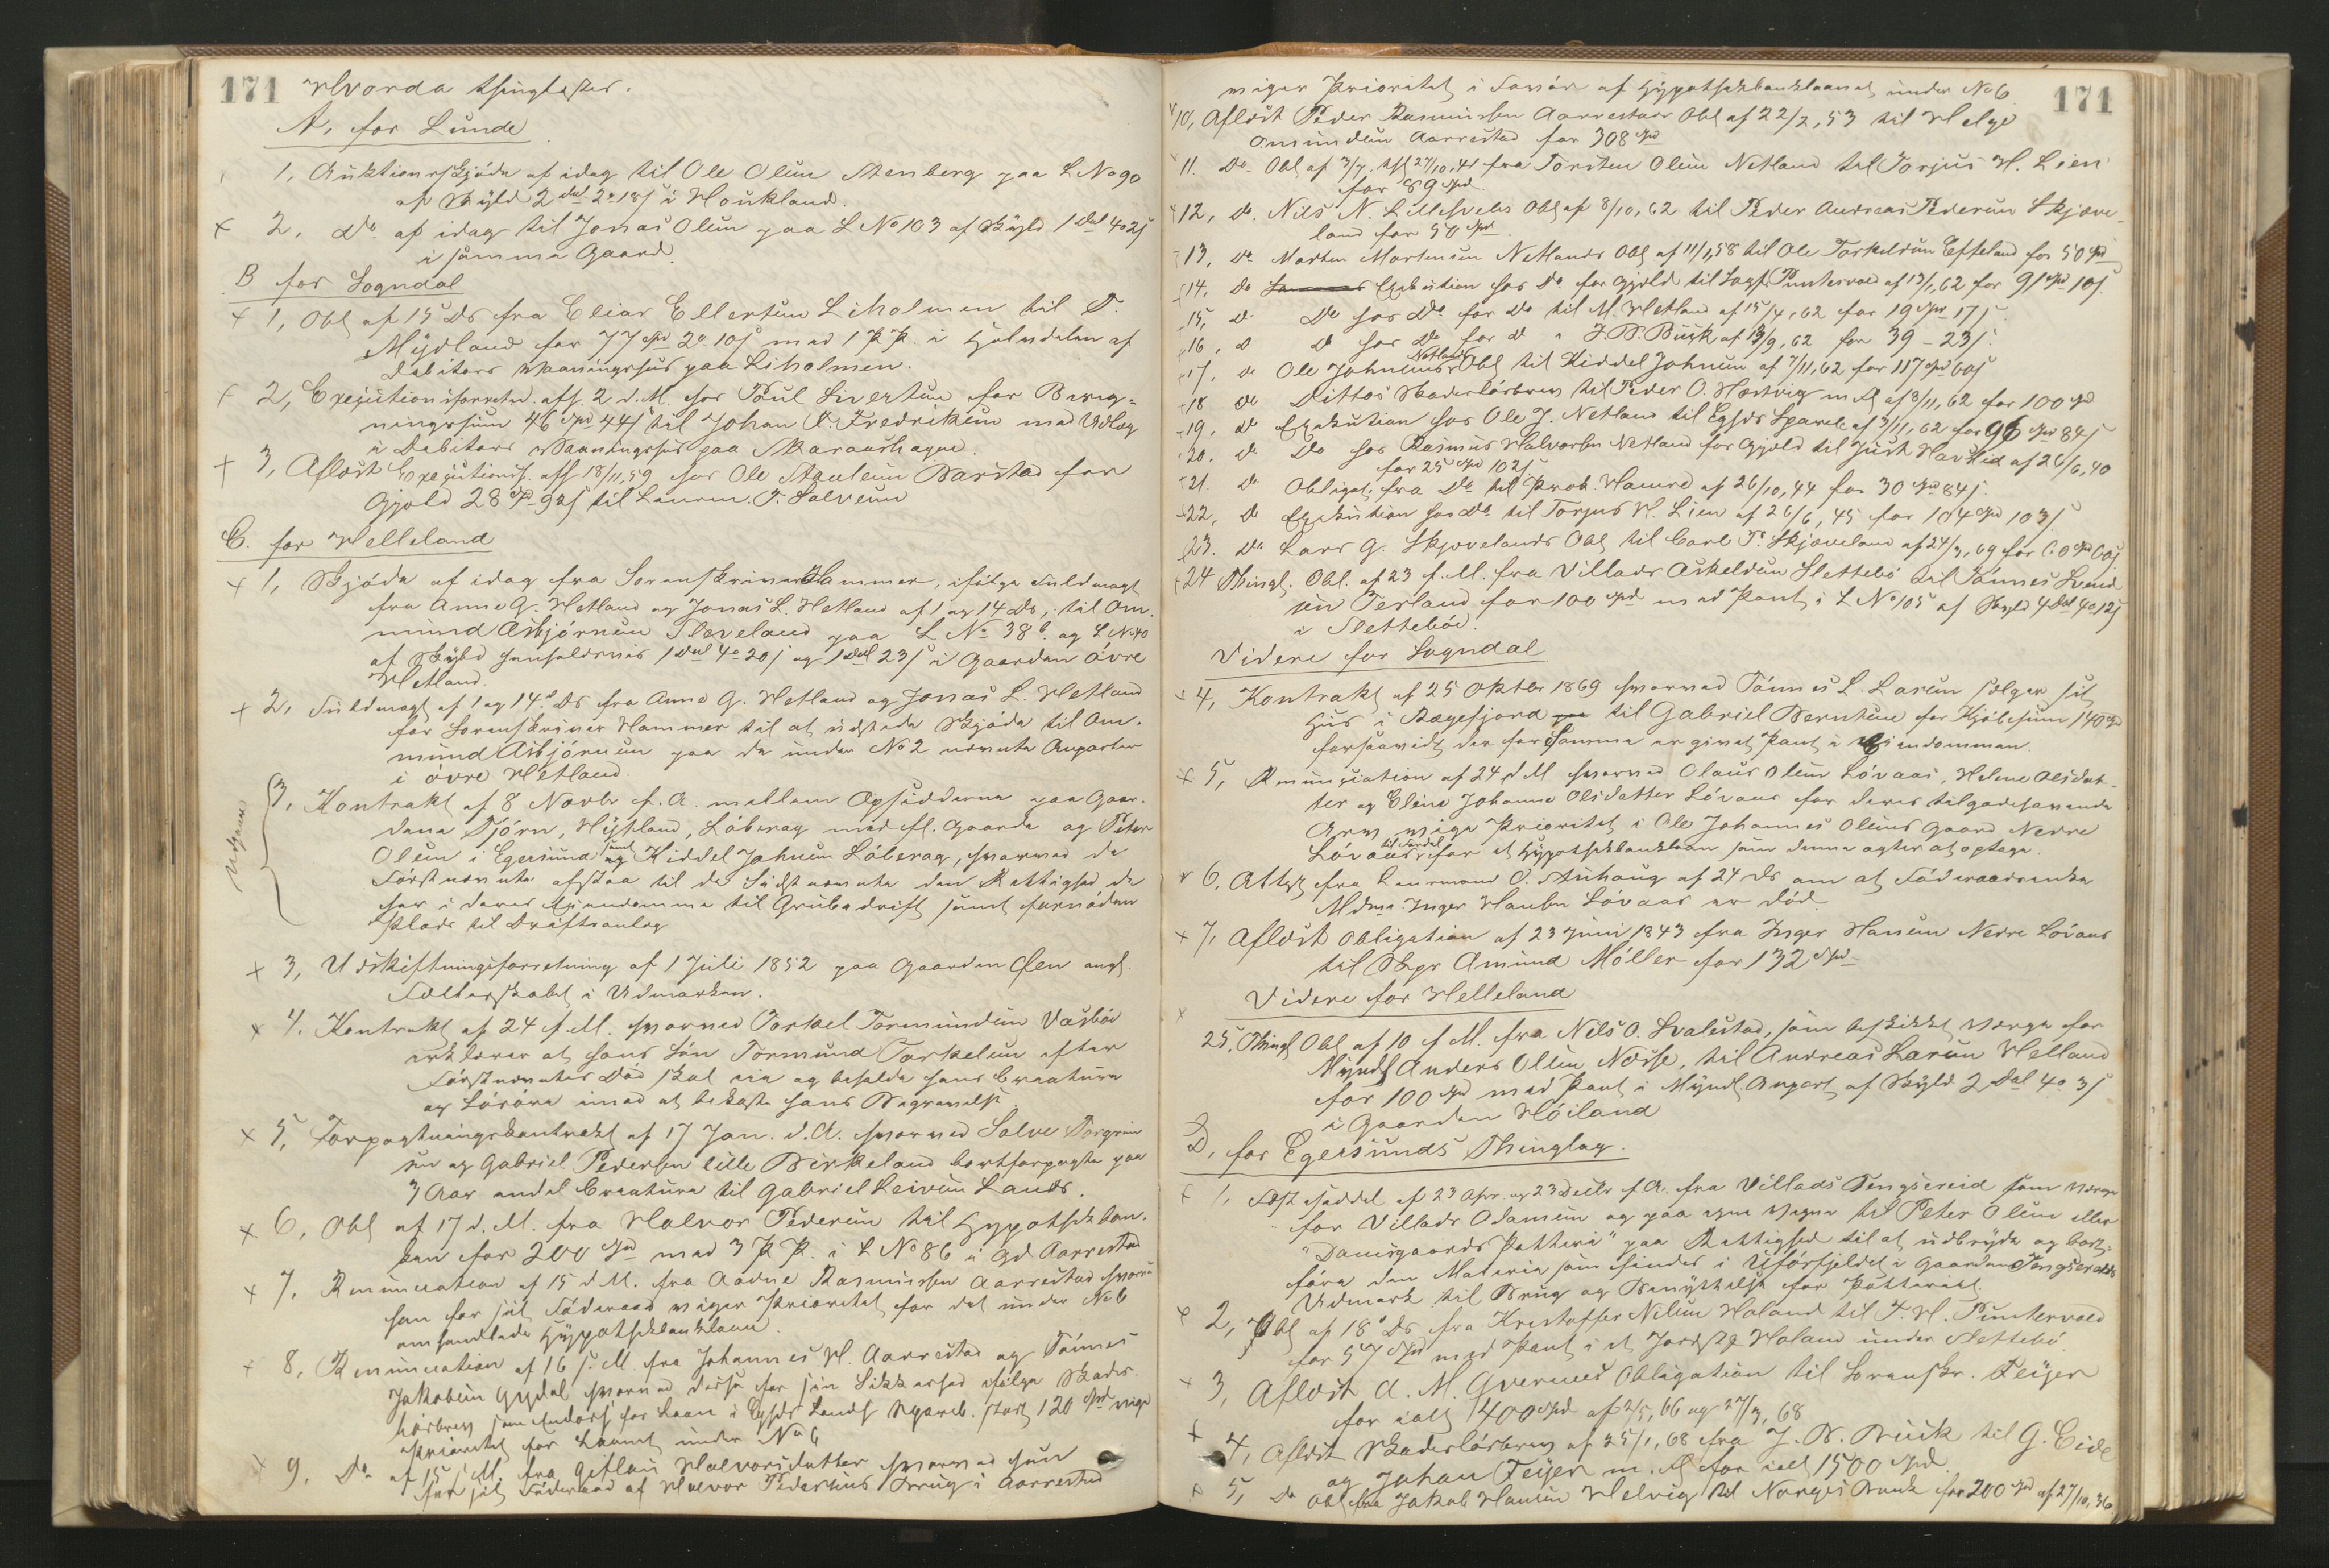 171 Hvorda thinglæstes.
A, for Lunde
1, Auktionsskjøde af idag til Ole Olsen Stenberg paa L No 90
af Skyld 2 Dal 2 o 18 s i Houkland.
2, Do af idag til Jonas Olsen paa L No 103 af Skyld 1 Dal 4 o 2 s
i samme Gaard.
B for Sogndal
1, Obl af 15 Ds fra Elias Ellertsen Liholmen til
Mydland for 77 Spd 2 o 10 s med 1 P.P. i Halvdelen af
Debitors Vaaningshus paa Liholmen.
2, Exekutionsforretn. aff. 2 d.M. hos Poul Sivertsen for Bevig-
ningssum 46 Spd 44 s til Johan F. Fredriksen med Udlæg
i Debitors Vaaningshus paa
3, Aflæst Exekutionsf. aff 18/11, 59 hos Ole Barstad for
Gjæld 28 Spd 92 s til T. Salvesen
C. for Helleland
1, Skjøde af idag fra Sorenskriver Hammer, ifølge Fuldmagt
fra Anne G. Hetland og Jonas L. Hetland af 1 og 14 Ds, til Om-
mund Asbjørnsen Sleveland paa L No 38 b. og L No 40
af Skyld henholdsvis 1 Dal 4 o 20 s og 1 Dal 23 s i Gaarden øvre
Hetland.
2, Fuldmagt af 1 og 14 Ds fra Anne G. Hetland og Jonas L. Hetland
for Sorenskriver Hammer til at udstede Skjøde til Om-
mund Asbjørnsen paa de under No 2 nævnte Anparter
i øvre Hetland.
Udgaar
3, Kontrakt af 8 Novbr f.A. mellem Opsidderne paa Gaar-
dene Tjørn, Hytland, Løberag med fl. Gaarde og Peter
Olsen i Egersund samt og Kiddel Johnsen Løberag, hvorved de
Førstnævnte afstaa til de Sidstnævnte den Rettighed de
har i deres Eiendomme til Grubedrift samt fornøden
Plads til Driftsanlæg
3, Udskiftningsforretning af 1 Juli 1852 paa Gaarden Øen angl.
Fælleskabet i Udmarken.
4. Kontrakt af 24 f.M. hvorved Torkel Tormundsen Vasbø
erklærer at hans Søn Tormund Torkelsen efter
Førstnævntes Død skal eie og beholde hans Creature
og Løsøre imod at bekoste hans Begravelse.
5, Forpagtningskontrakt af 17 Jan. d.A. hvorved Salve Torgrim
sen og Gabriel Pedersen lille Birkeland bortforpagte paa
3 Aar endel Creature til Gabriel Leivsen Lands.
6, Obl af 17 d.M. fra Halvor Pedersen til Hypothekban-
ken for 200 Spd med 3 P.P. i L No 86 i Gd Aarrestad
7. Renunciation af 15 d.M. fra Aadne Rasmussen Aarrestad hvorved
han for sit Føderaad viger Prioritet for det under No 6
omhandlede Hypothekbanklaan.
8, Renunciation af 16 s.M. fra Johannes H. Aarrestad og Tønnes
Jakobsen Gydal hvorved disse for sin Sikkerhed ifølge Skades-
løsbrev som for Laan i Egsds Lands Spareb. stort 120 Spd vige
Prioritet for Laanet under No 6
9. Do af 15 s.M. fra Halvorsdatter hvorved hun
for sit Føderaad af Halvor Pedersens Brug i Aarrestad
171
viger Prioritet i Favør af Hypothekbanklaanet under No 6
10, Aflæst Peder Rasmussen Aarrestads Obl af 22/2, 53 til Helge
Omundsen Aarrestad for 308 Spd
11. Do. Obl af 3/7, thgl 27/10, 41 fra Torsten Olsen Netland til Torjus H. Lien
for 89 Spd.
12, do. Nils N. Lillehelles Obl af 8/10, 62 til Peder Andreas Pedersen Skjæve-
land for 50 Spd.
13, Do Morten Mortensen Netlands Obl af 11/1, 58 til Ole Torkeldsen Efteland for 50 Spd
14, Do Exekution hos Do for Gjæld til Lagf. Puntervold af 13/1, 62 for 91 Spd 10 s.
15, d Do hos Do for Do til M. Hetland af 15/4, 62 for 19 Spd 17 s.
16, d d hos Do for d " J.B. Buck af 13/9, 62 for 39 - 23 s.
17, d Ole Johnsens Netland Obl til Kiddel Johnsen af 7/11, 62 for 117 Spd 60 s
18 do Dittos Skadesløsbrev til Peder O. Hæstvig m.fl. af 8/11, 62 for 100 Spd
19, d Exekution hos Ole J. Netland til Egsds Spareb. af 3/11, 62 for 96 Spd 84 s
20. d Do hos Rasmus Halvorsen Netland for Gjæld til Just Hav af 26/6, 40
for 25 Spd 102 s.
21. d Obligat. fra Do til Prok. Hamre af 26/10, 44 for 30 Spd 84 s.
22, d Exekution hos Do til Torjus H. Lien af 26/6, 45 for 104 Spd 103 s
23. do Lars G. Skjævelands Obl til Carl T. Skjæveland af 24/3, 69 for
24 Thingl. Obl. af 23 f.M. fra Villads Askeldsen Slettebø til Tønnes Svend
sen Terland for 100 Spd med Pant i L No 105 af Skyld 4 Dal 4 o 12 s
i Slettebø.
Videre for Sogndal
4, Kontrakt af 25 Oktbr 1869 hvorved Tønnes L. Larsen sælger sit
Hus i Rægefjord til Gabriel Berntsen for Kjøbesum 140 Spd
forsaavidt der for Samme er givet Pant i Eiendommen.
5, Renunciation af 24 d.M. hvorved Olaus Olsen Løvaas, Helene Olsdat-
ter og Elene Johanne Olsdatter Løvaas for deres tilgodehavende
Arv vige Prioritet i Ole Johannes Olsens Gaard Nedre
Løvaas til Fordel for et Hypothekbanklaan som denne agter at optage.
6. Attest fra Lensmand O. Stuhaug af 24 Ds om at Føderaadsenke
Mdme Inger Løvaas er død.
7, Aflæst Obligation af 23 Juni 1843 fra Inger Hansen Nedre Løvaas
til Skpr Amund Møller for 132 Spd
Videre for Helleland
25, Thingl Obl af 10 f.M. fra Nils O. Svalestad, som beskikket Værge for
Myndl Anders Olsen til Andreas Larsen Helland
for 100 Spd med Pant i Myndl. Anpart af Skyld 2 Dal 4 o 3 s
i Gaarden Høiland
D, for Egersunds Thinglag.
1, Fæsteseddel af 23 Apr. og 23 Decbr f.A. fra Villads Tengsereid som Værge
for Villads Odamsen og paa egne Vegne til Peter Olsen eller
"Damsgaards Potteri" paa Rettighed til at udbryde og bort-
føre den Materie som findes i Uførfjeldet i Gaarden Tengsereids
Udmark til Brug og Benyttelse for Potteriet.
2, Obl af 18 Ds fra Kristoffer Nilsen Haland til T.H. Puntervold
for 57 Spd med Pant i et Jordst. Haland under Slettebø
3, Aflæst A. M. Obligation til Sorenskr. Feyer
for ialt 1400 Spd af 2/5, 66 og 27/3, 68
4, Aflæst Skadesløsbrev af 25/1, 68 fra J. B. Buck til G. Eide
og Johan Feyer m. fl. for ialt 1500 Spd.
5, Do Obl fra Jakob Hansen Helvig til Norges Bank for 200 Spd af 27/10, 36